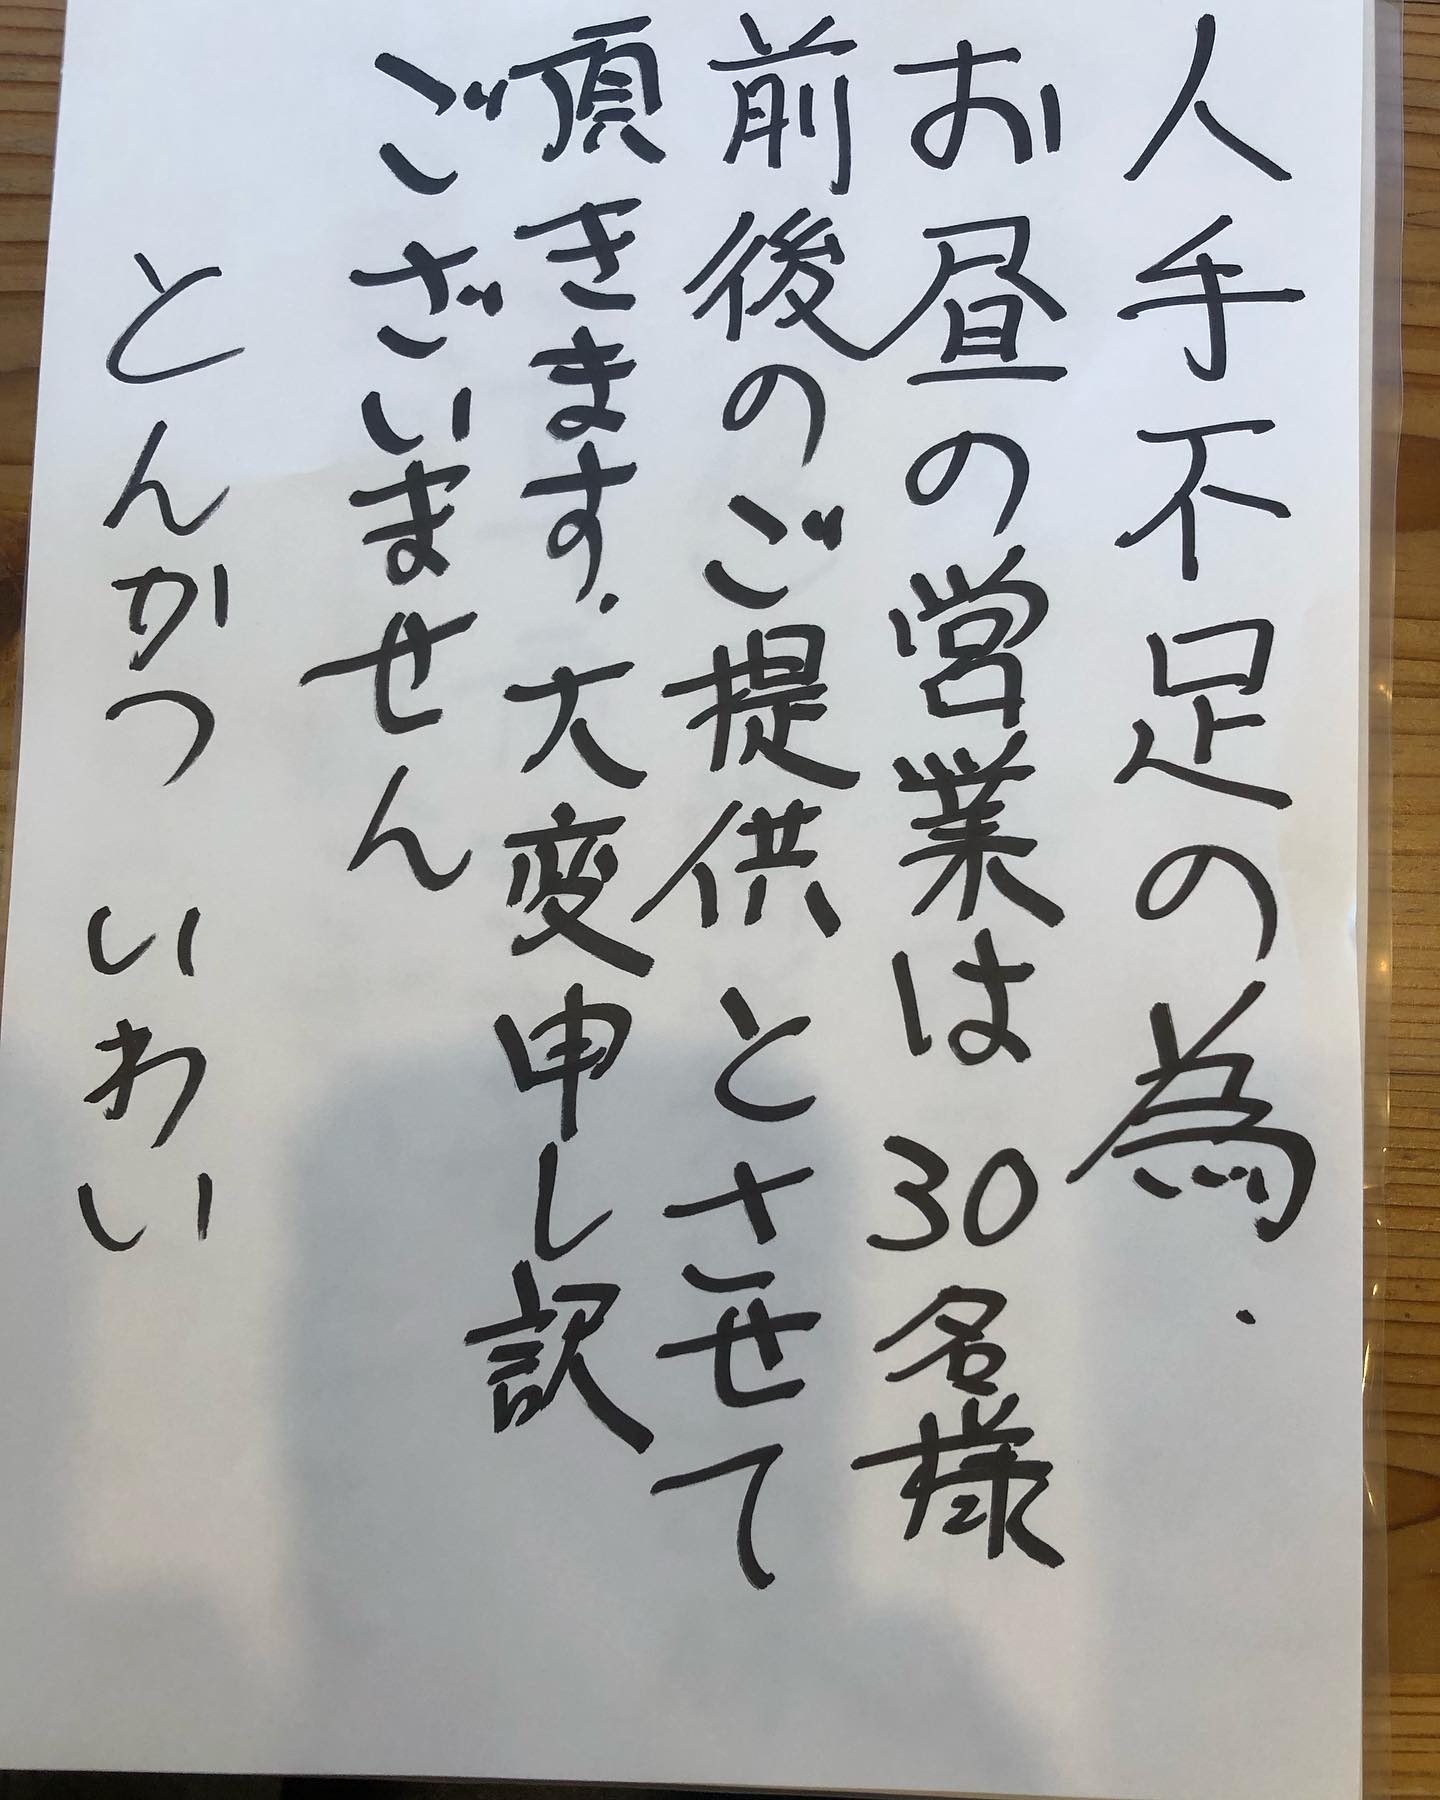 人手不足の為.
お昼の営業は30名様
前後のご提供とさせて
頂きます.大変申し訳
ございません
とんかつ いわい